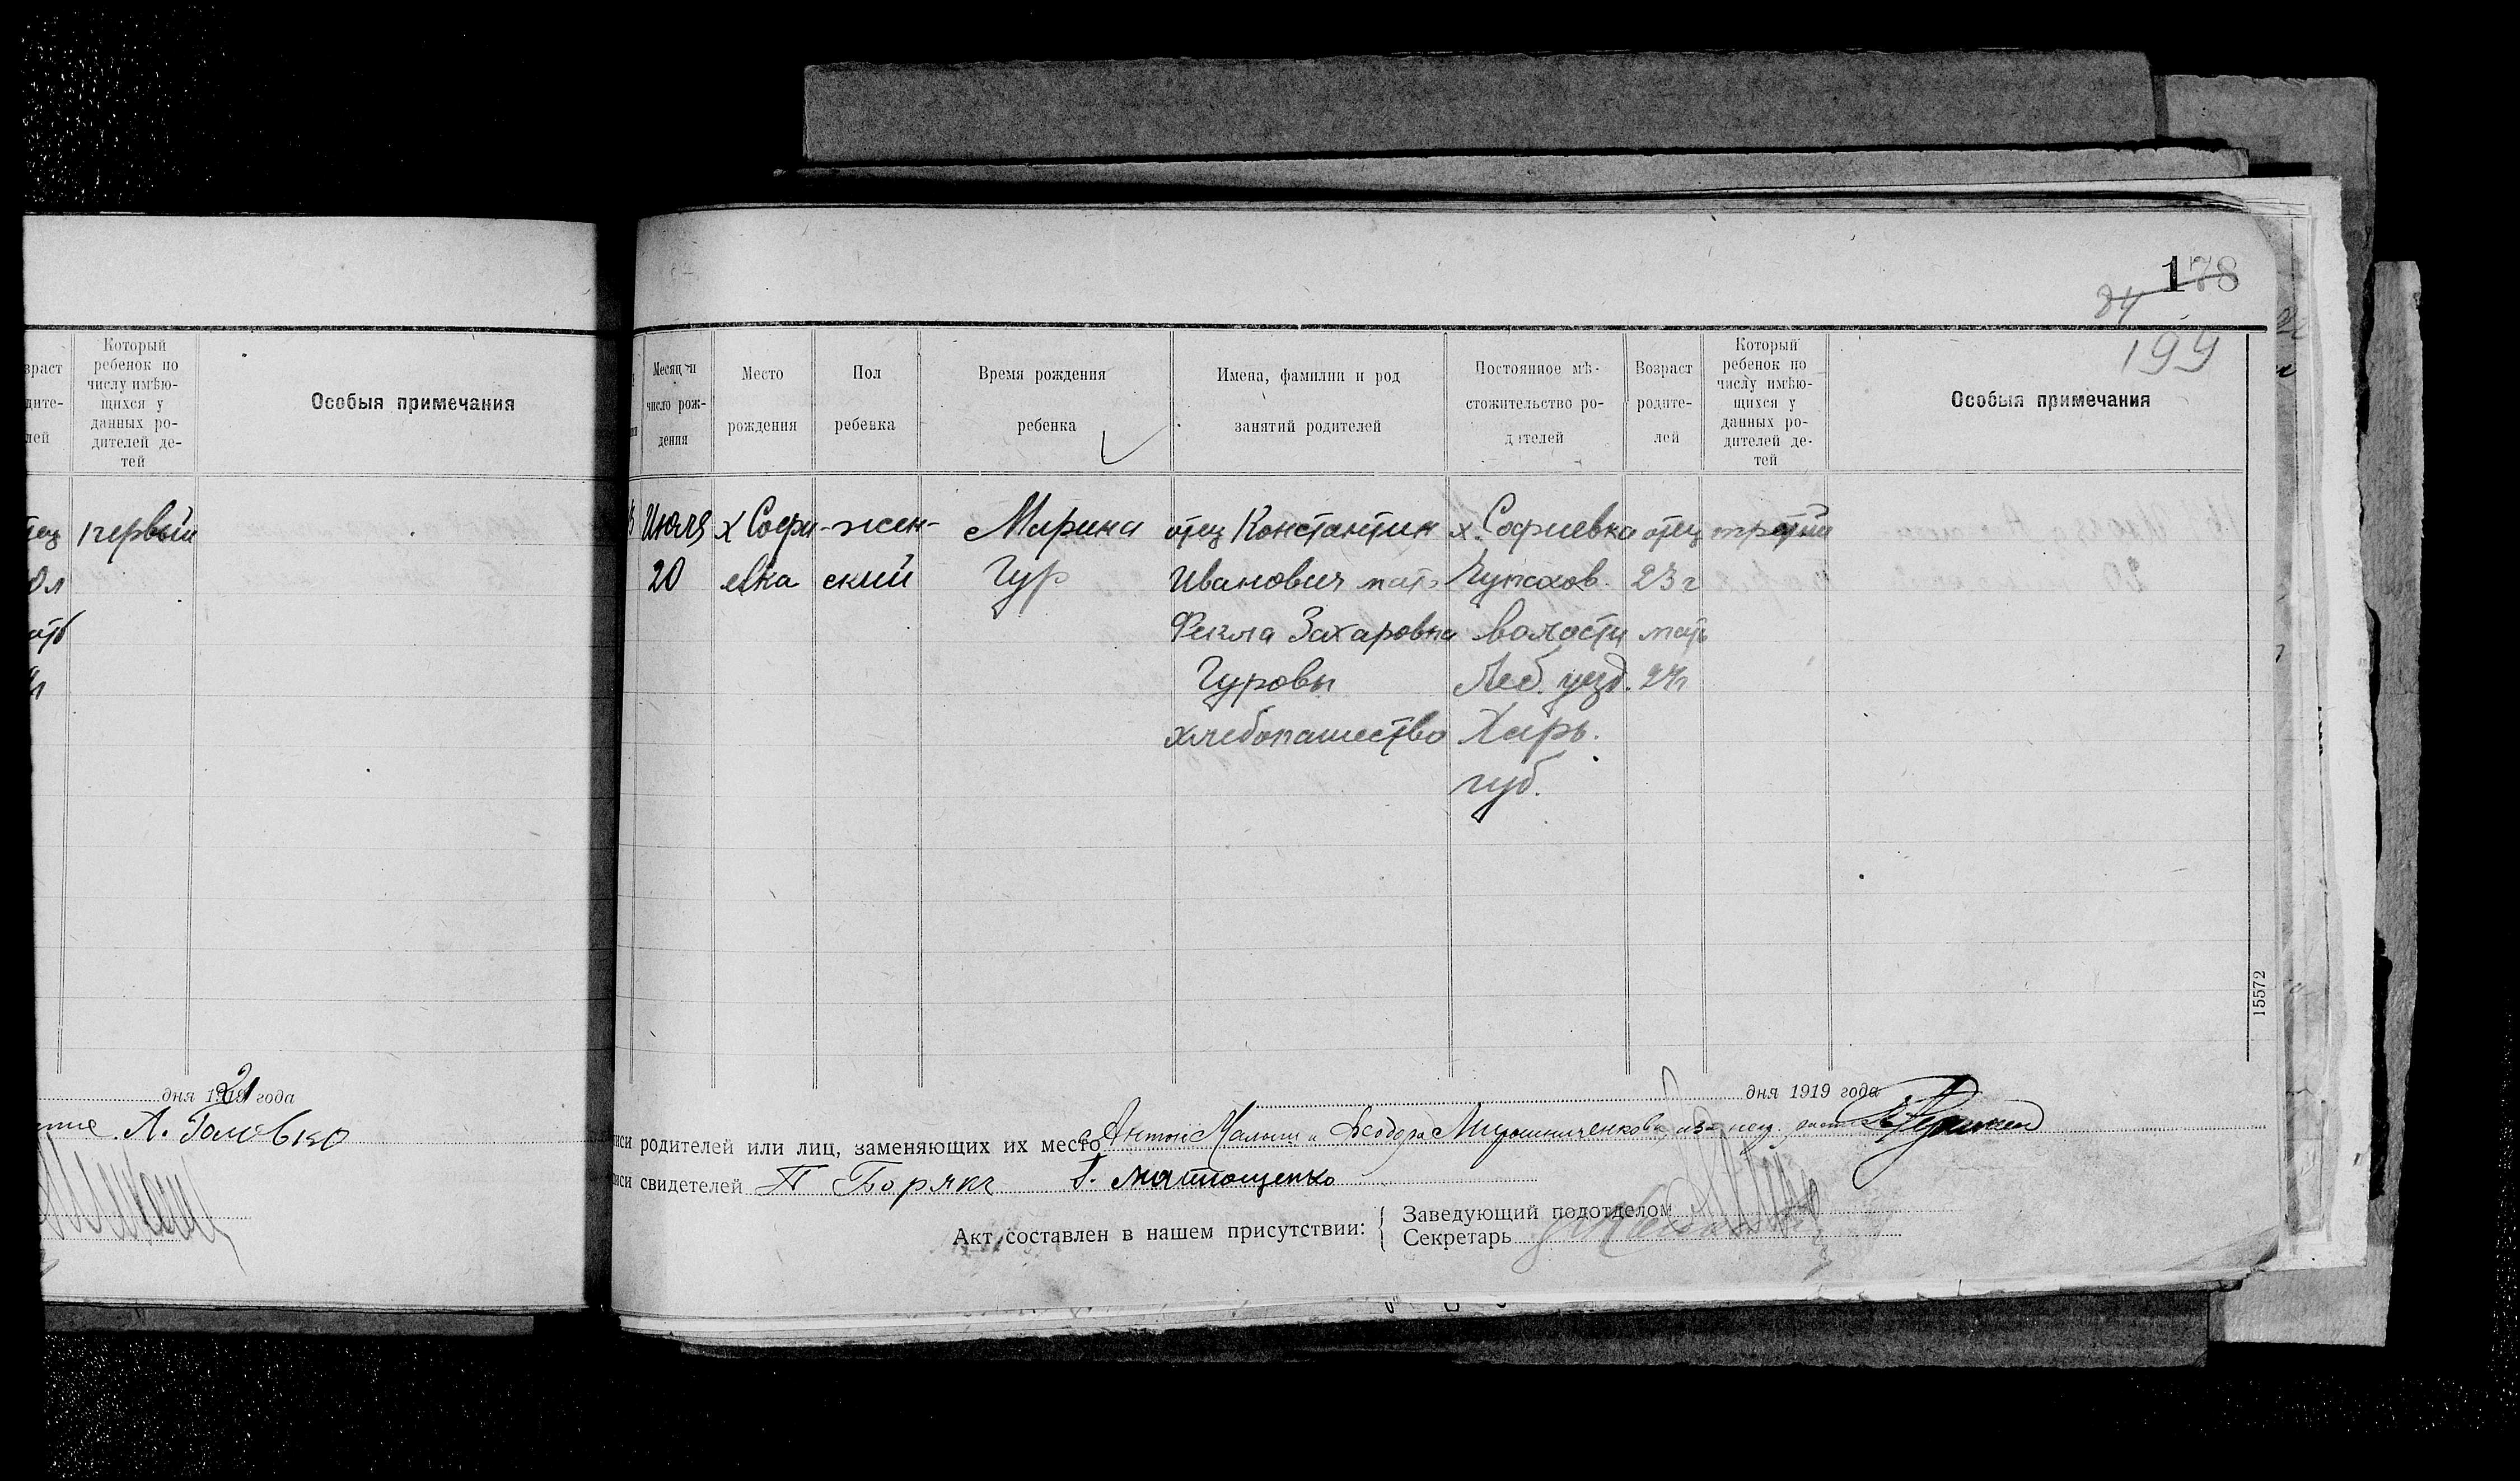 178
84
199
зраст
дите-
лей
Который
ребенок по
числу имѣю-
щихся у
данных ро-
дителей де-
тей
Особыя примечания
первый
дня 1921 года
А. Головко
Месяц и
число рож-
дения
Место
рождения
Пол
ребенка
Время рождения
ребенка
Имена, фамилии и род
занятий родителей
Постоянное мѣ-
стожительство ро-
дителей
Возраст
родите-
лей
Который
ребенок по
числу имѣю-
щихся у
данных ро-
дителей де-
тей
Особыя примечания
Июля
20
х Софи-
евка
жен-
ский
Марина
Гур
отец Константин
Иванович мать
Фекла Захаровна
Гуровы
хлебопашество
х. Софиевка
Чупахов.
волости
Леб. уезд.
Харь.
губ.
отец
23 г
мать
24 г
третий
15572
дня 1919 года
писи родителей или лиц, заменяющих их место Антон Малыш и Феодора Мирошниченкова
писи свидетелей П Боряк Г. Матющенко
Акт составлен в нашем присутствии:
Заведующий подотделом
Секретарь